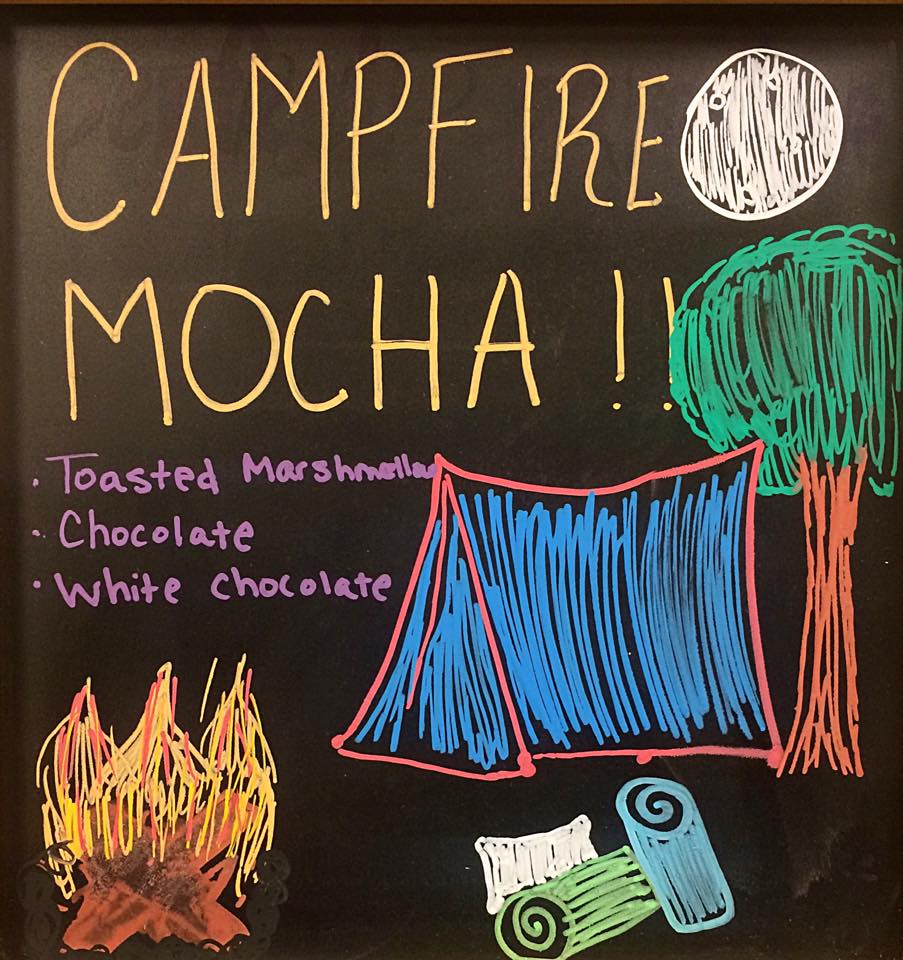 CAMPFIRE
MOCHA!!
· Toasted Marshmellow
· Chocolate
· White chocolate